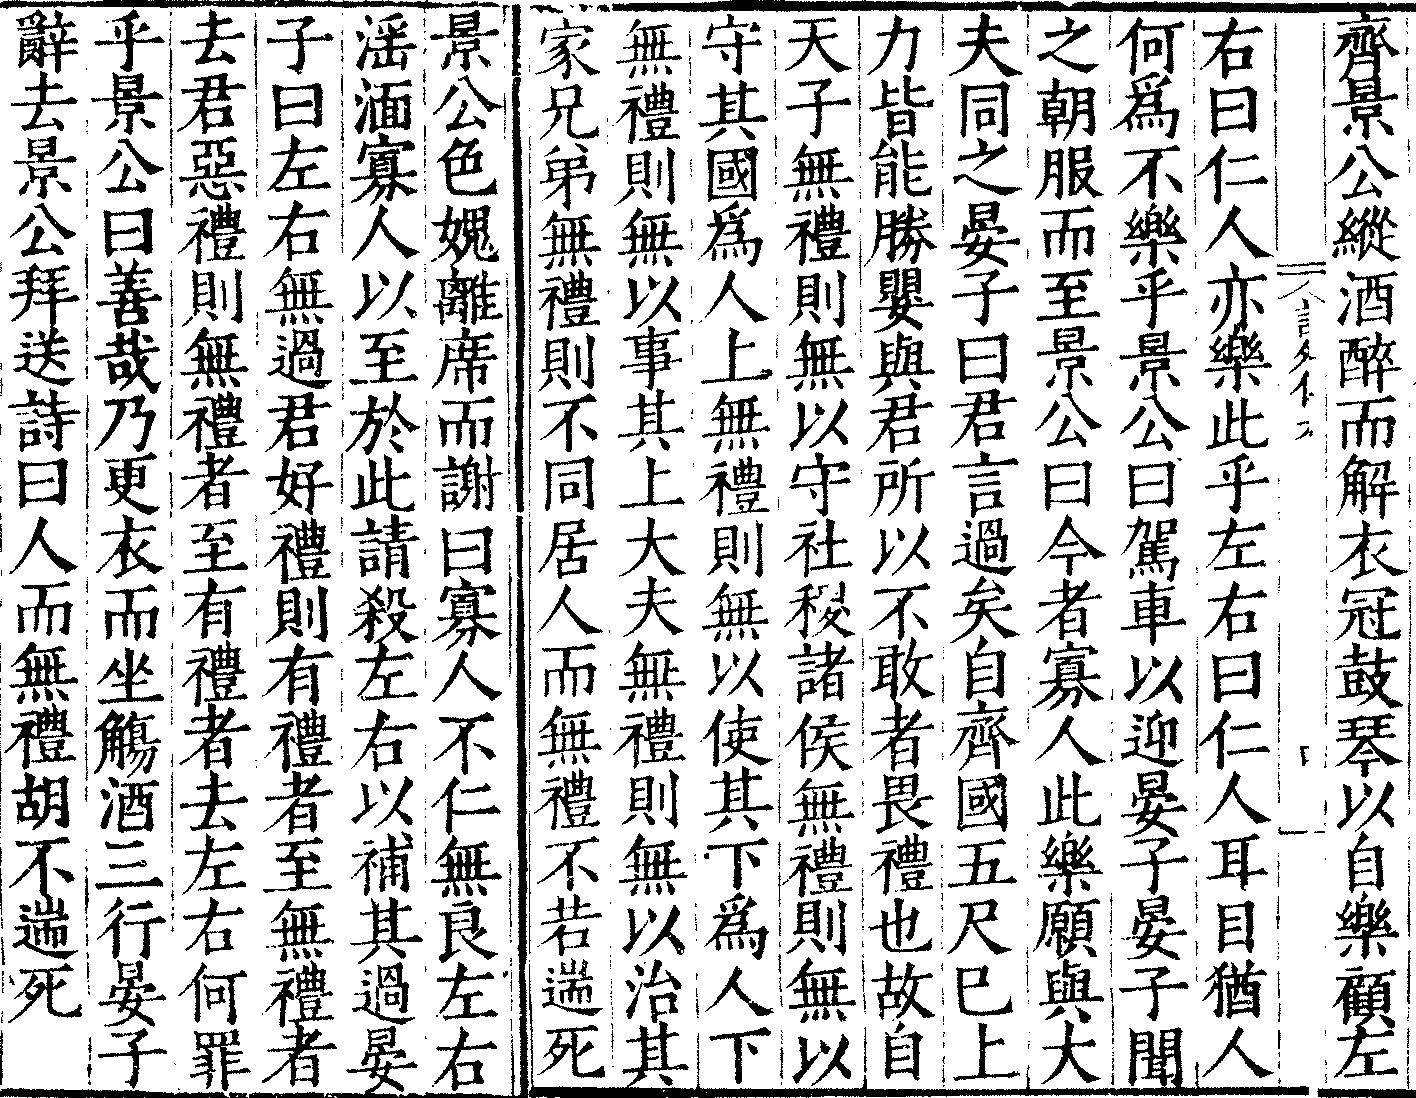 齊景公縱酒醉而解衣冠鼓琴以自樂顧左
右曰仁人亦樂此乎左右曰仁人耳目猶人
何爲不樂乎景公曰駕車以迎晏子晏子聞
之朝服而至景公曰今者寡人此樂願與大
夫同之晏子曰君言過矣自齊國五尺已上
力皆能勝嬰與君所以不敢者畏禮也故自
天子無禮則無以守社稷諸侯無禮則無以
守其國爲人上無禮則無以使其下爲人下
無禮則無以事其上大夫無禮則無以治其
家兄弟無禮則不同居人而無禮不若遄死
景公色媿離席而謝曰寡人不仁無良左右
淫湎寡人以至於此請殺左右以補其過晏
子曰左右無過君好禮則有禮者至無禮者
去君惡禮則無禮者至有禮者去左右何罪
乎景公曰善哉乃更衣而坐觴酒三行晏子
辭去景公拜送詩曰人而無禮胡不遄死